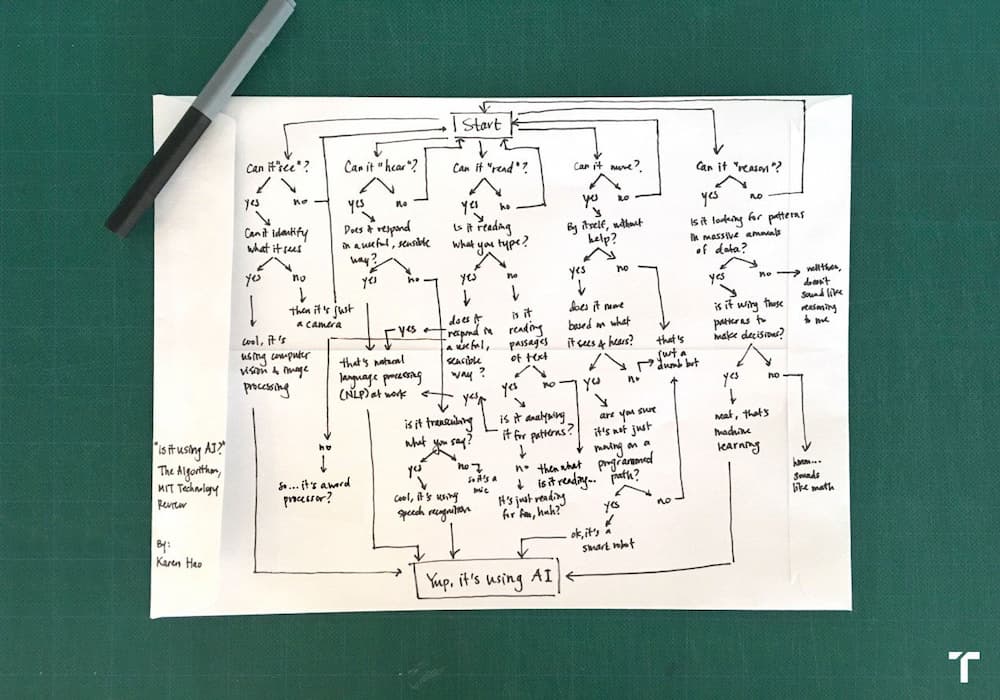 Start
Can it "see"?
yes
no
Can it identify
what it sees
yes
no
Then it's just
a camera
cool, it's
using computer
vision & image
processing
Can it "hear"?
yes
no
Does it respond
in a useful, sensible
way?
yes
no
yes
that's natural
language processing
(NLP) at work
is it transcribing
what you say?
yes
no
so it's a
mic
cool, it's using
speech recognition
Can it "read"?
yes
no
Is it reading
what you type?
yes
no
does it
respond in
a useful,
sensible
way?
no
so... it's a word
processor?
is it
reading
passages
of text
yes
no
then what
is it reading...
is it analyzing
it for patterns?
yes
no
It's just reading
for fun, huh?
Can it move?
yes
no
By itself, without
help?
yes
no
does it move
based on what
it sees & hears?
yes
no
that's
just a
dumb bot
are you sure
it's not just
running on a
programmed
path?
yes
no
ok, it's a
smart robot
Can it "reason"?
yes
no
Is it looking for patterns
in massive amounts
of data?
yes
no
well then,
doesn't
sound like
reasoning
to me
is it using those
patterns to
make decisions?
yes
no
neat, that's
machine
learning
hmm...
sounds
like math
Yup, it's using AI
"Is it using AI?"
The Algorithm,
MIT Technology
Review
By:
Karen Hao